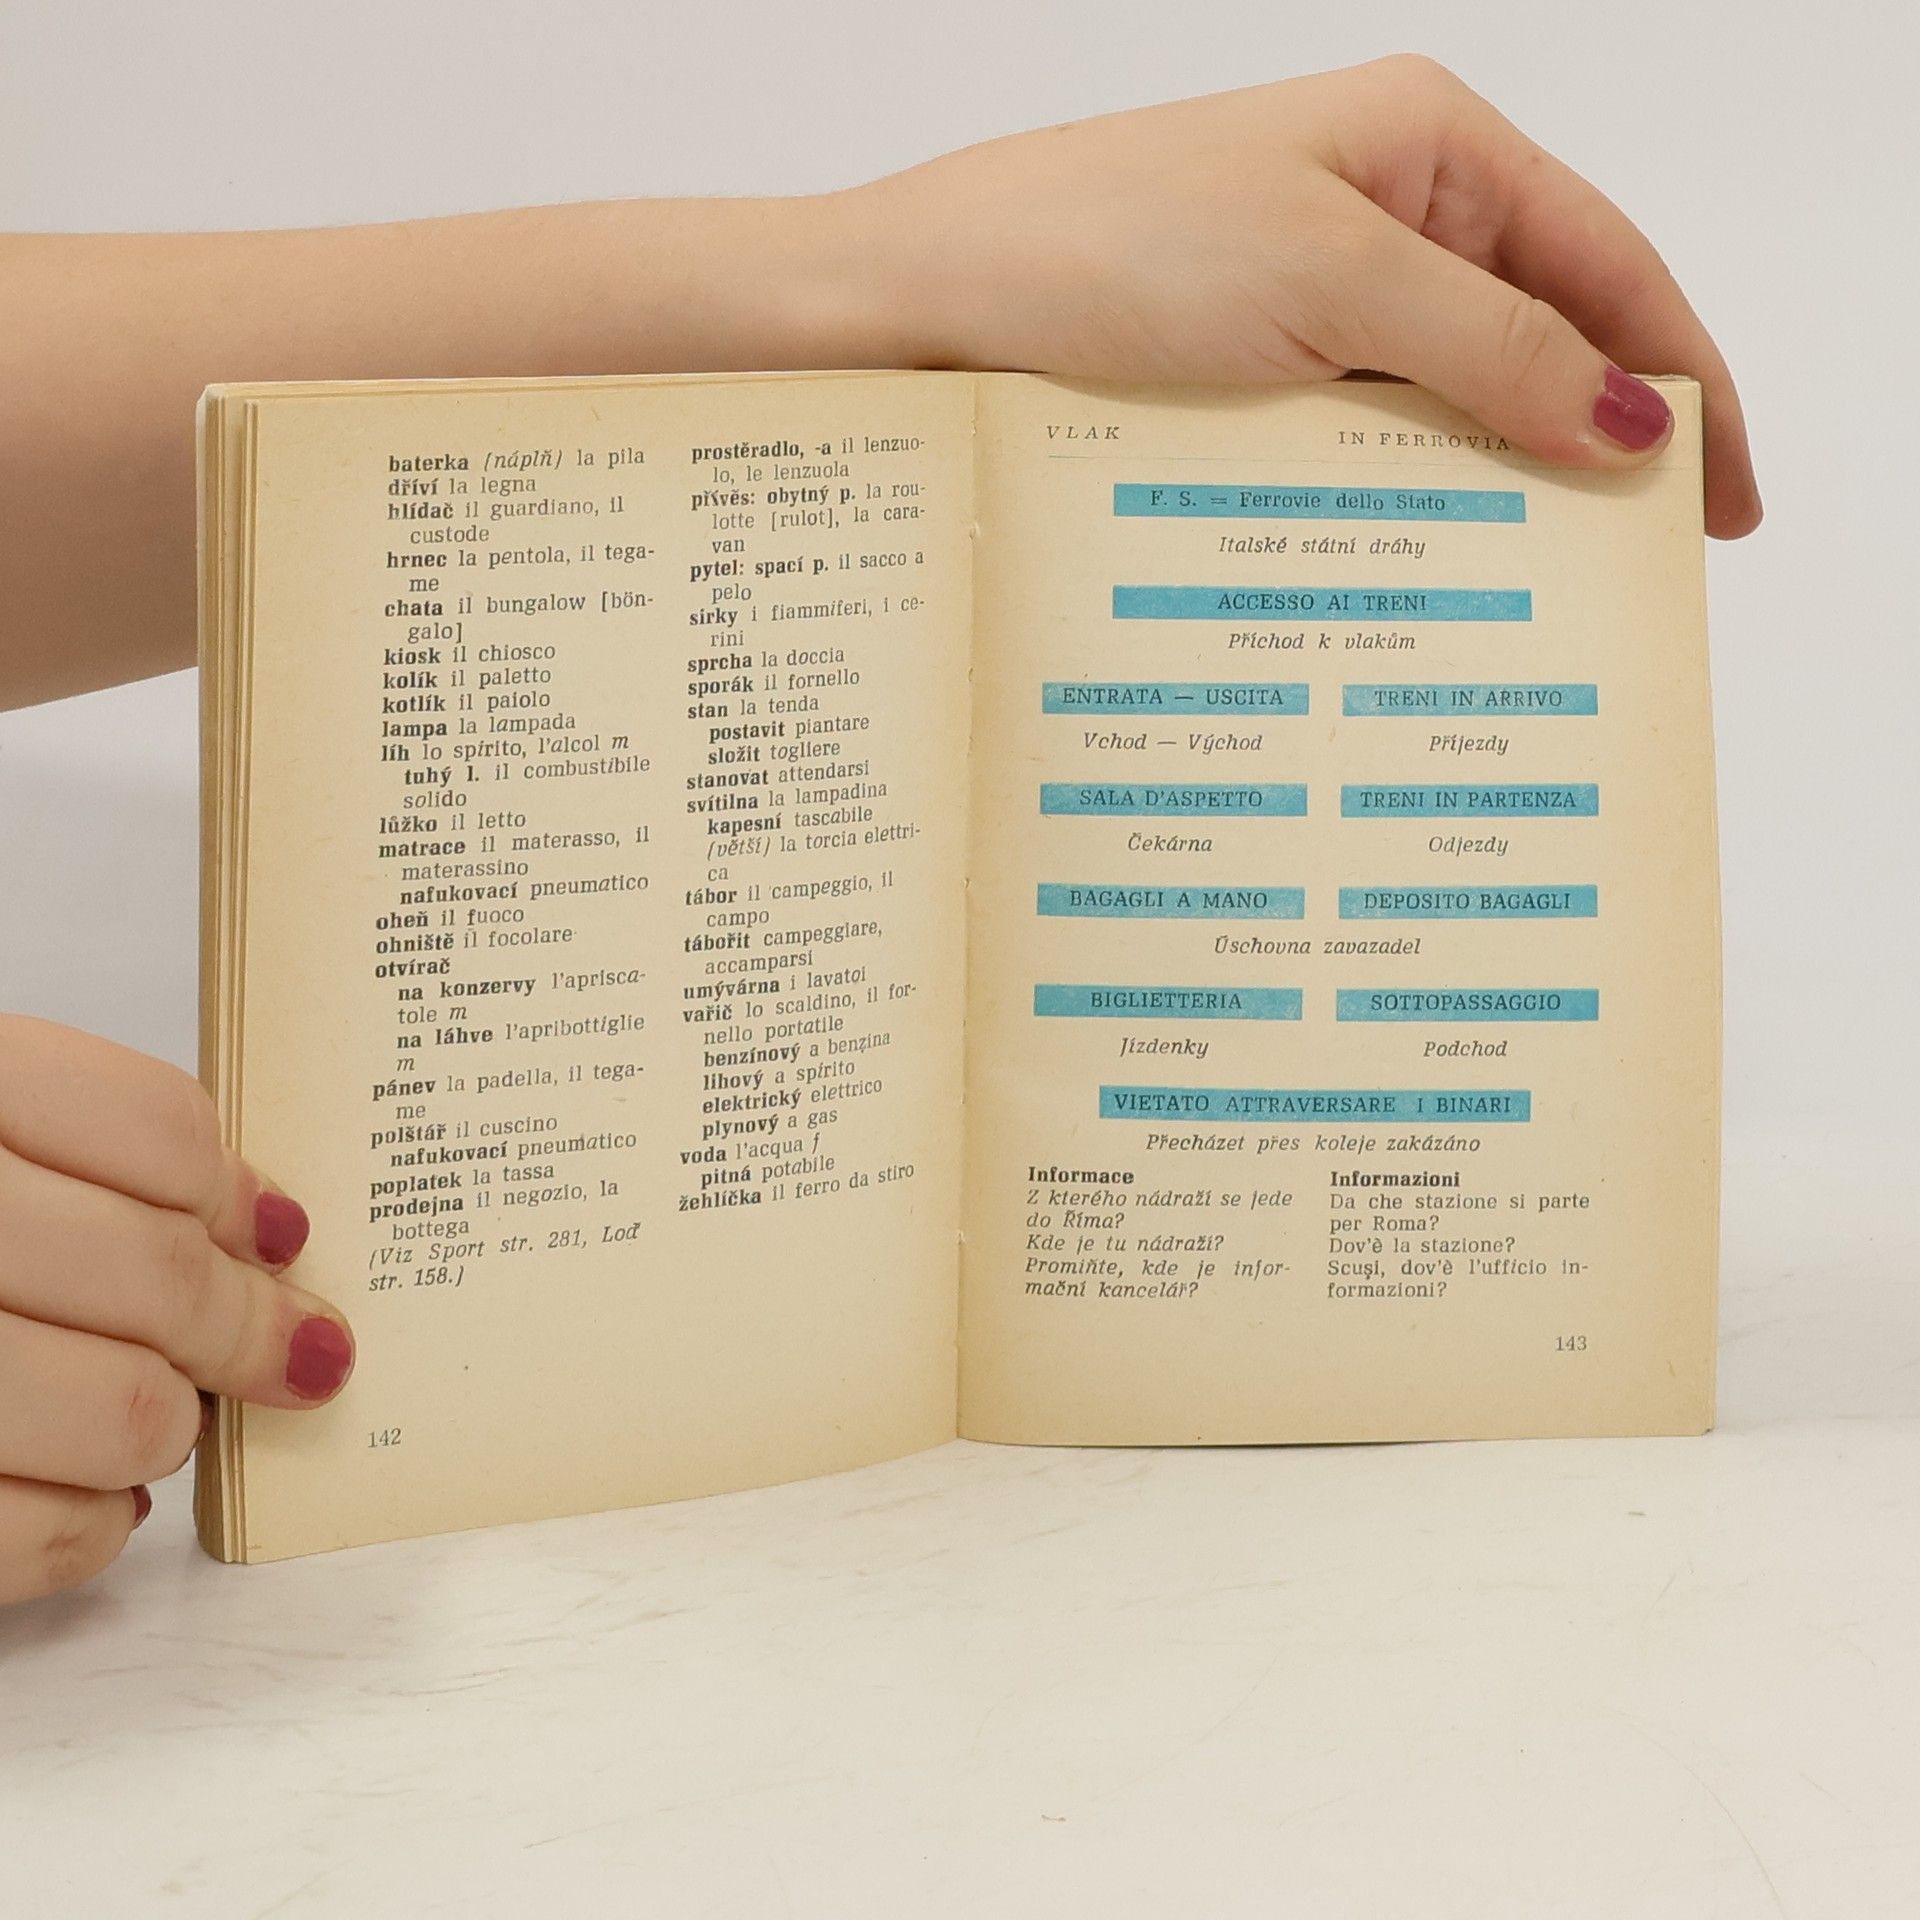 baterka (náplň) la pila
dříví la legna
hlídač il guardiano, il
custode
hrnec la pentola, il tega-
me
chata il bungalow [bön-
galo]
kiosk il chiosco
kolík il paletto
kotlík il paiolo
lampa la lampada
líh lo spirito, l'alcol m
tuhý l. il combustibile
solido
lůžko il letto
matrace il materasso, il
materassino
nafukovací pneumatico
oheň il fuoco
ohniště il focolare
otvírač
na konzervy l'aprisca-
tole m
na láhve l'apribottiglie
m
pánev la padella, il tega-
me
polštář il cuscino
nafukovací pneumatico
poplatek la tassa
prodejna il negozio, la
bottega
(Viz Sport str. 281, Loď
str. 158.)
142
prostěradlo, -a il lenzuo-
lo, le lenzuola
přívěs: obytný p. la rou-
lotte [rulot], la cara-
van
pytel: spací p. il sacco a
pelo
sirky i fiammiferi, i ce-
rini
sprcha la doccia
sporák il fornello
stan la tenda
postavit piantare
složit togliere
stanovat attendarsi
svítilna la lampadina
kapesní tascabile
(větší) la torcia elettri-
ca
tábor il campeggio, il
campo
tábořit campeggiare,
accamparsi
umývárna i lavatoi
vařič lo scaldino, il for-
nello portatile
benzínový a benzina
lihový a spirito
elektrický elettrico
plynový a gas
voda l'acqua f
pitná potabile
žehlička il ferro da stiro
VLAK IN FERROVIA
F. S. = Ferrovie dello Stato
Italské státní dráhy
ACCESSO AI TRENI
Příchod k vlakům
ENTRATA — USCITA TRENI IN ARRIVO
Vchod — Východ Příjezdy
SALA D'ASPETTO TRENI IN PARTENZA
Čekárna Odjezdy
BAGAGLI A MANO DEPOSITO BAGAGLI
Úschovna zavazadel
BIGLIETTERIA SOTTOPASSAGGIO
Jízdenky Podchod
VIETATO ATTRAVERSARE I BINARI
Přecházet přes koleje zakázáno
Informace
Z kterého nádraží se jede
do Říma?
Kde je tu nádraží?
Promiňte, kde je infor-
mační kancelář?
Informazioni
Da che stazione si parte
per Roma?
Dov'è la stazione?
Scusi, dov'è l'ufficio in-
formazioni?
143